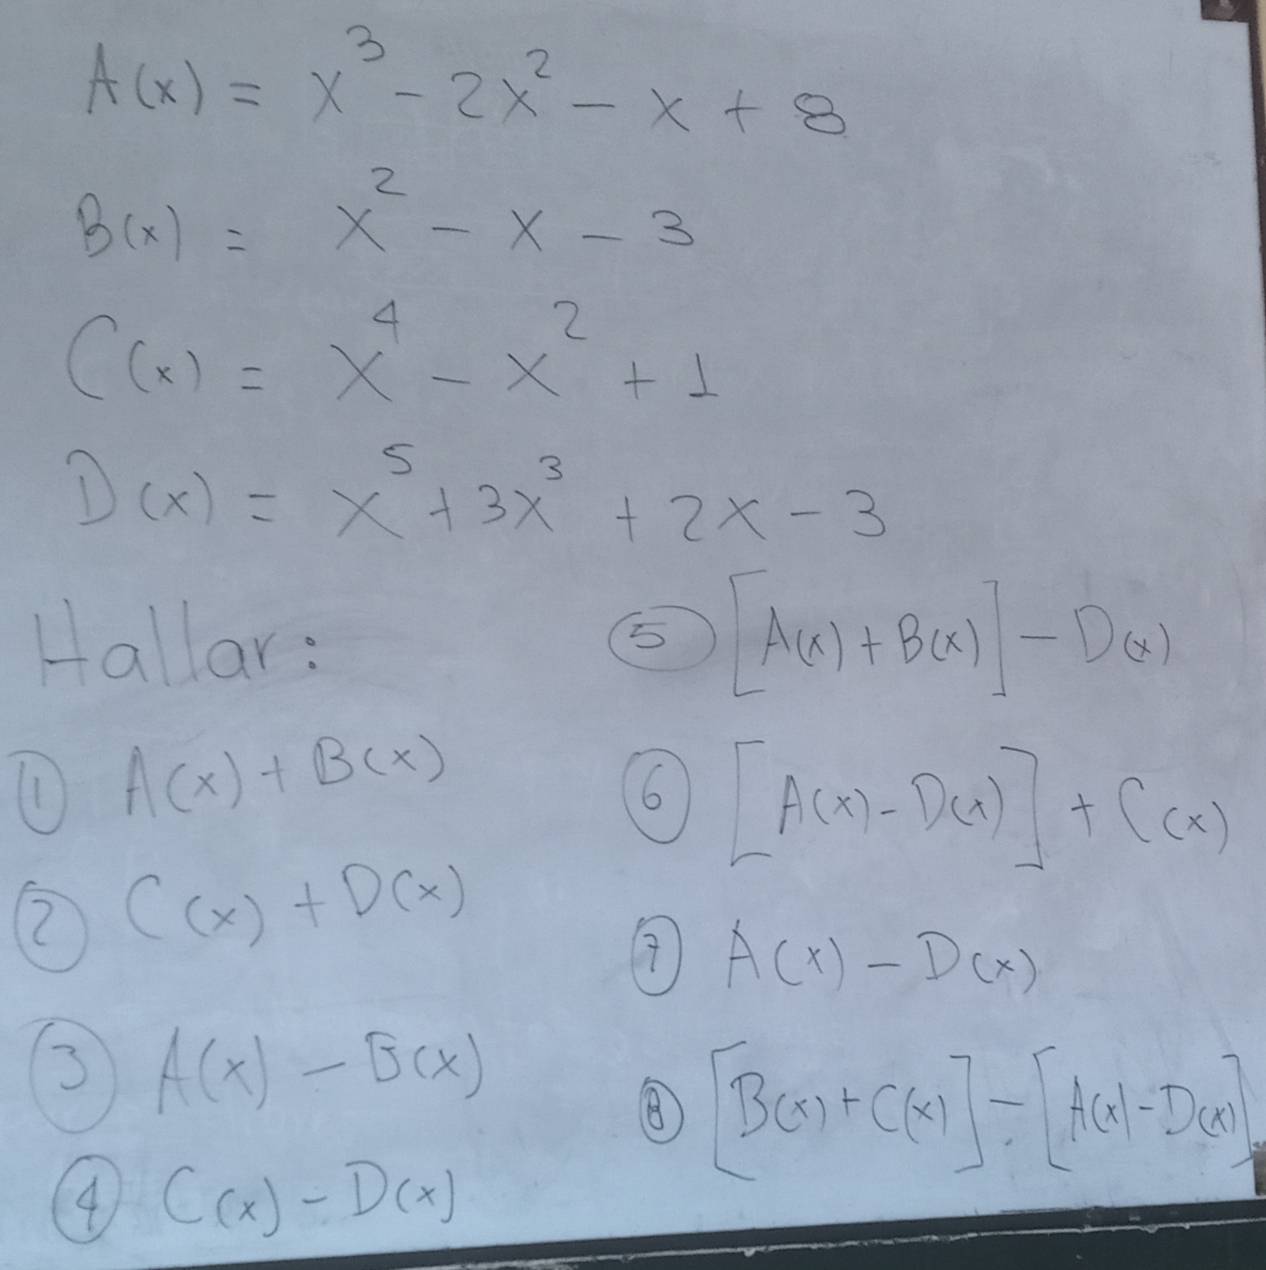 A(x) = x³ - 2x² - x + 8
B(x) = x² - x - 3
C(x) = x⁴ - x² + 1
D(x) = x⁵ + 3x³ + 2x - 3
Hallar:
① A(x) + B(x)
② C(x) + D(x)
③ A(x) - B(x)
④ C(x) - D(x)
⑤ [A(x) + B(x)] - D(x)
⑥ [A(x) - D(x)] + C(x)
⑦ A(x) - D(x)
⑧ [B(x) + C(x)] - [A(x) - D(x)]